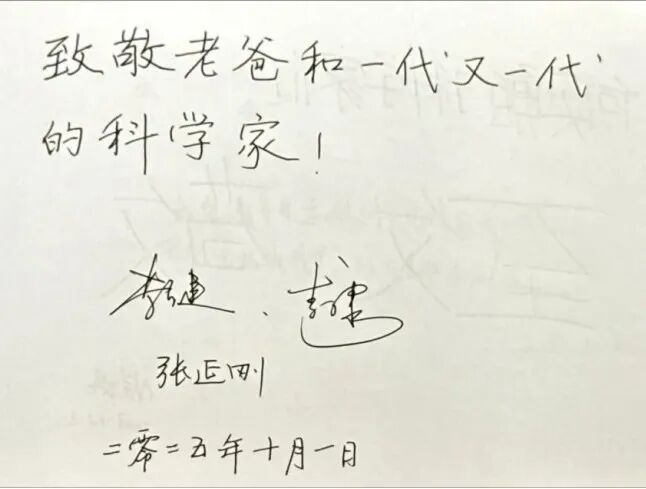 致敬老爸和一代又一代
的科学家！
张正刚
二零二五年十月一日